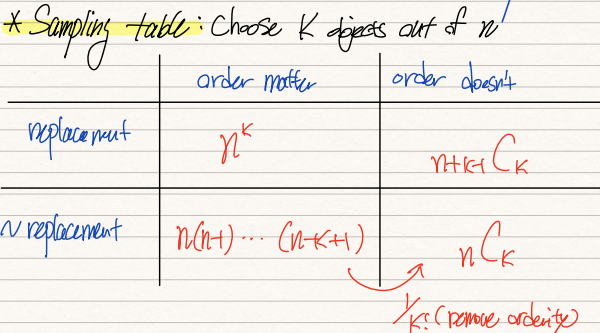 * Sampling table: Choose K objects out of n
order matter order doesn't
replacement n^K n+K-1 C K
~ replacement n(n-1) ... (n-K+1) n C K
1/K! (remove orderity)